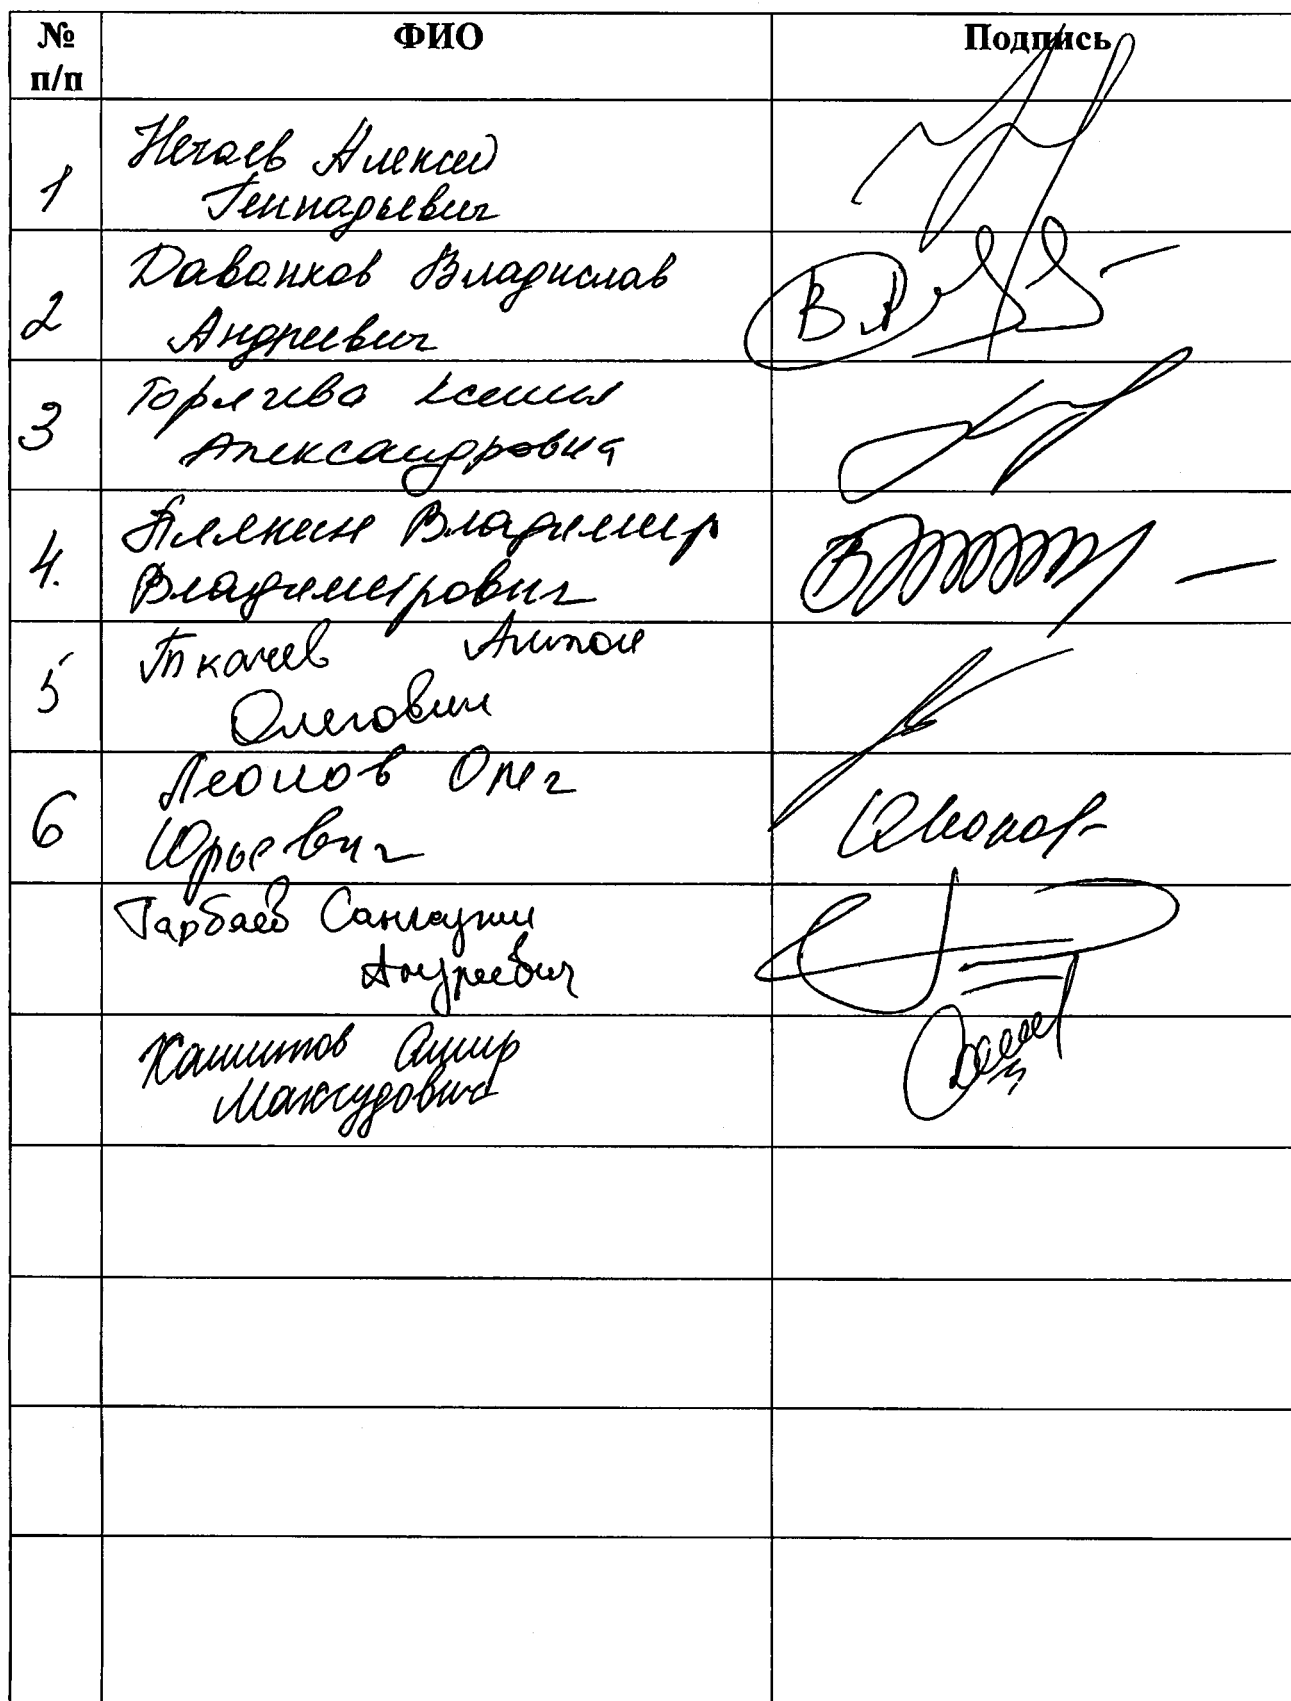 № п/п ФИО Подпись
1 Нечаев Алексей
Геннадьевич
2 Даванков Владислав
Андреевич
3 Горячева Ксения
Александровна
4. Плякин Владимир
Владимирович
5 Ткачев Антон
Олегович
6 Леонов Олег
Юрьевич
Тарбаев Сангаджи
Андреевич
Хамитов Амир
Махсудович